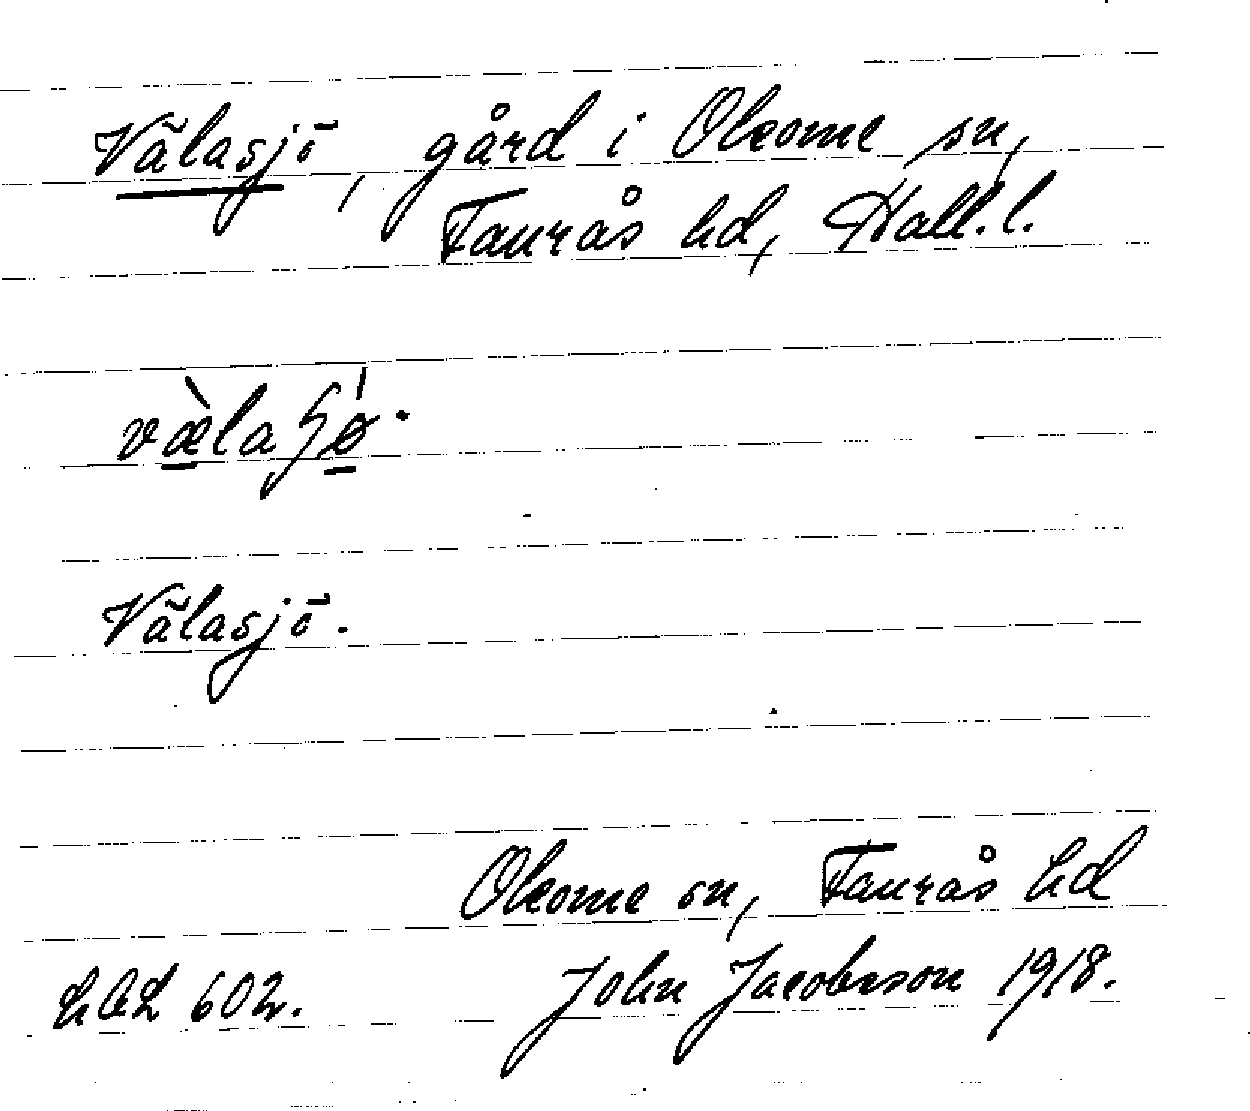 Välasjö, gård i Okome sn,
Faurås hd, Hall. l.
Välasjö.
Okome sn, Faurås hd
602. John Jacobsson 1918.